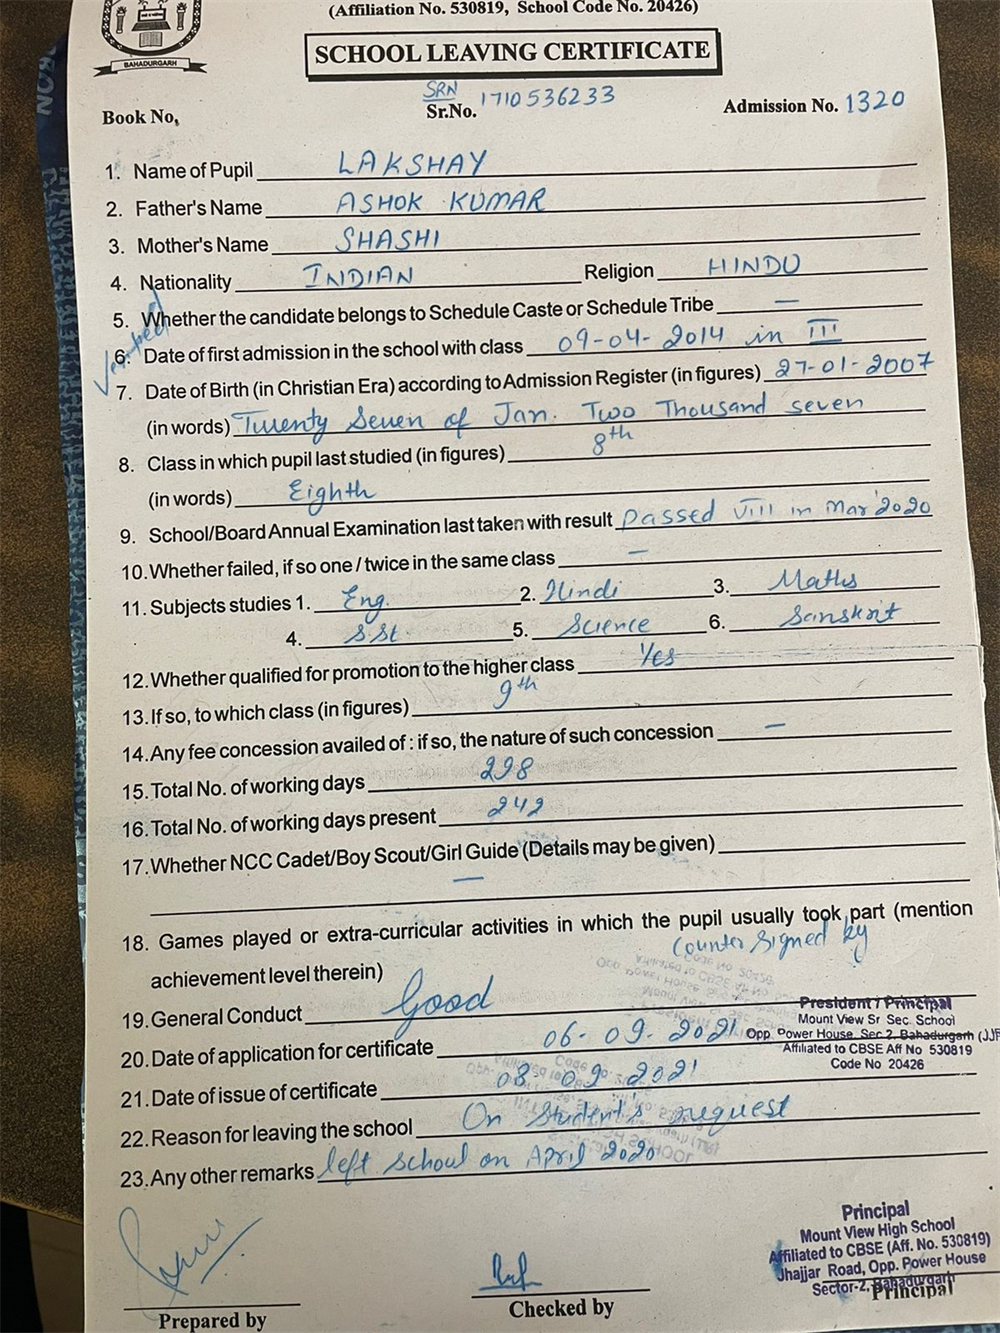 (Affiliation No. 530819, School Code No. 20426)
BAHADURGARH
SCHOOL LEAVING CERTIFICATE
SRN
Book No, Sr.No. 1710536233 Admission No. 1320
1. Name of Pupil LAKSHAY
2. Father's Name ASHOK KUMAR
3. Mother's Name SHASHI
4. Nationality INDIAN Religion HINDU
5. Whether the candidate belongs to Schedule Caste or Schedule Tribe —
6. Date of first admission in the school with class 09-04-2014 in III
7. Date of Birth (in Christian Era) according to Admission Register (in figures) 27-01-2007
(in words) Twenty Seven of Jan. Two Thousand seven
8. Class in which pupil last studied (in figures) 8th
(in words) Eighth
9. School/Board Annual Examination last taken with result Passed VIII in Mar'2020
10. Whether failed, if so one / twice in the same class —
11. Subjects studies 1. Eng. 2. Hindi 3. Maths
4. S.St 5. Science 6. Sanskrit
12. Whether qualified for promotion to the higher class Yes
13. If so, to which class (in figures) 9th
14. Any fee concession availed of : if so, the nature of such concession —
15. Total No. of working days 298
16. Total No. of working days present 242
17. Whether NCC Cadet/Boy Scout/Girl Guide (Details may be given)
—
18. Games played or extra-curricular activities in which the pupil usually took part (mention
achievement level therein)
Counter Signed by
19. General Conduct Good
President / Principal
Mount View Sr Sec. School
Opp. Power House, Sec 2, Bahadurgarh (JJR
Affiliated to CBSE Aff No 530819
Code No 20426
20. Date of application for certificate 06-09-2021
21. Date of issue of certificate 08-09-2021
22. Reason for leaving the school On Student's request
23. Any other remarks left school on April 2020
Principal
Mount View High School
Affiliated to CBSE (Aff. No. 530819)
Jhajjar Road, Opp. Power House
Sector-2, Bahadurgarh
Prepared by Checked by Principal